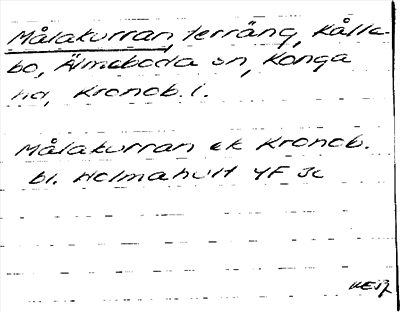 Målakurran, terräng, Kålle-
bo, Älmeboda sn, Konga
hd, Kronob. l.
Målakurran ek Kronob.
bl. Holmahult 4F 3c